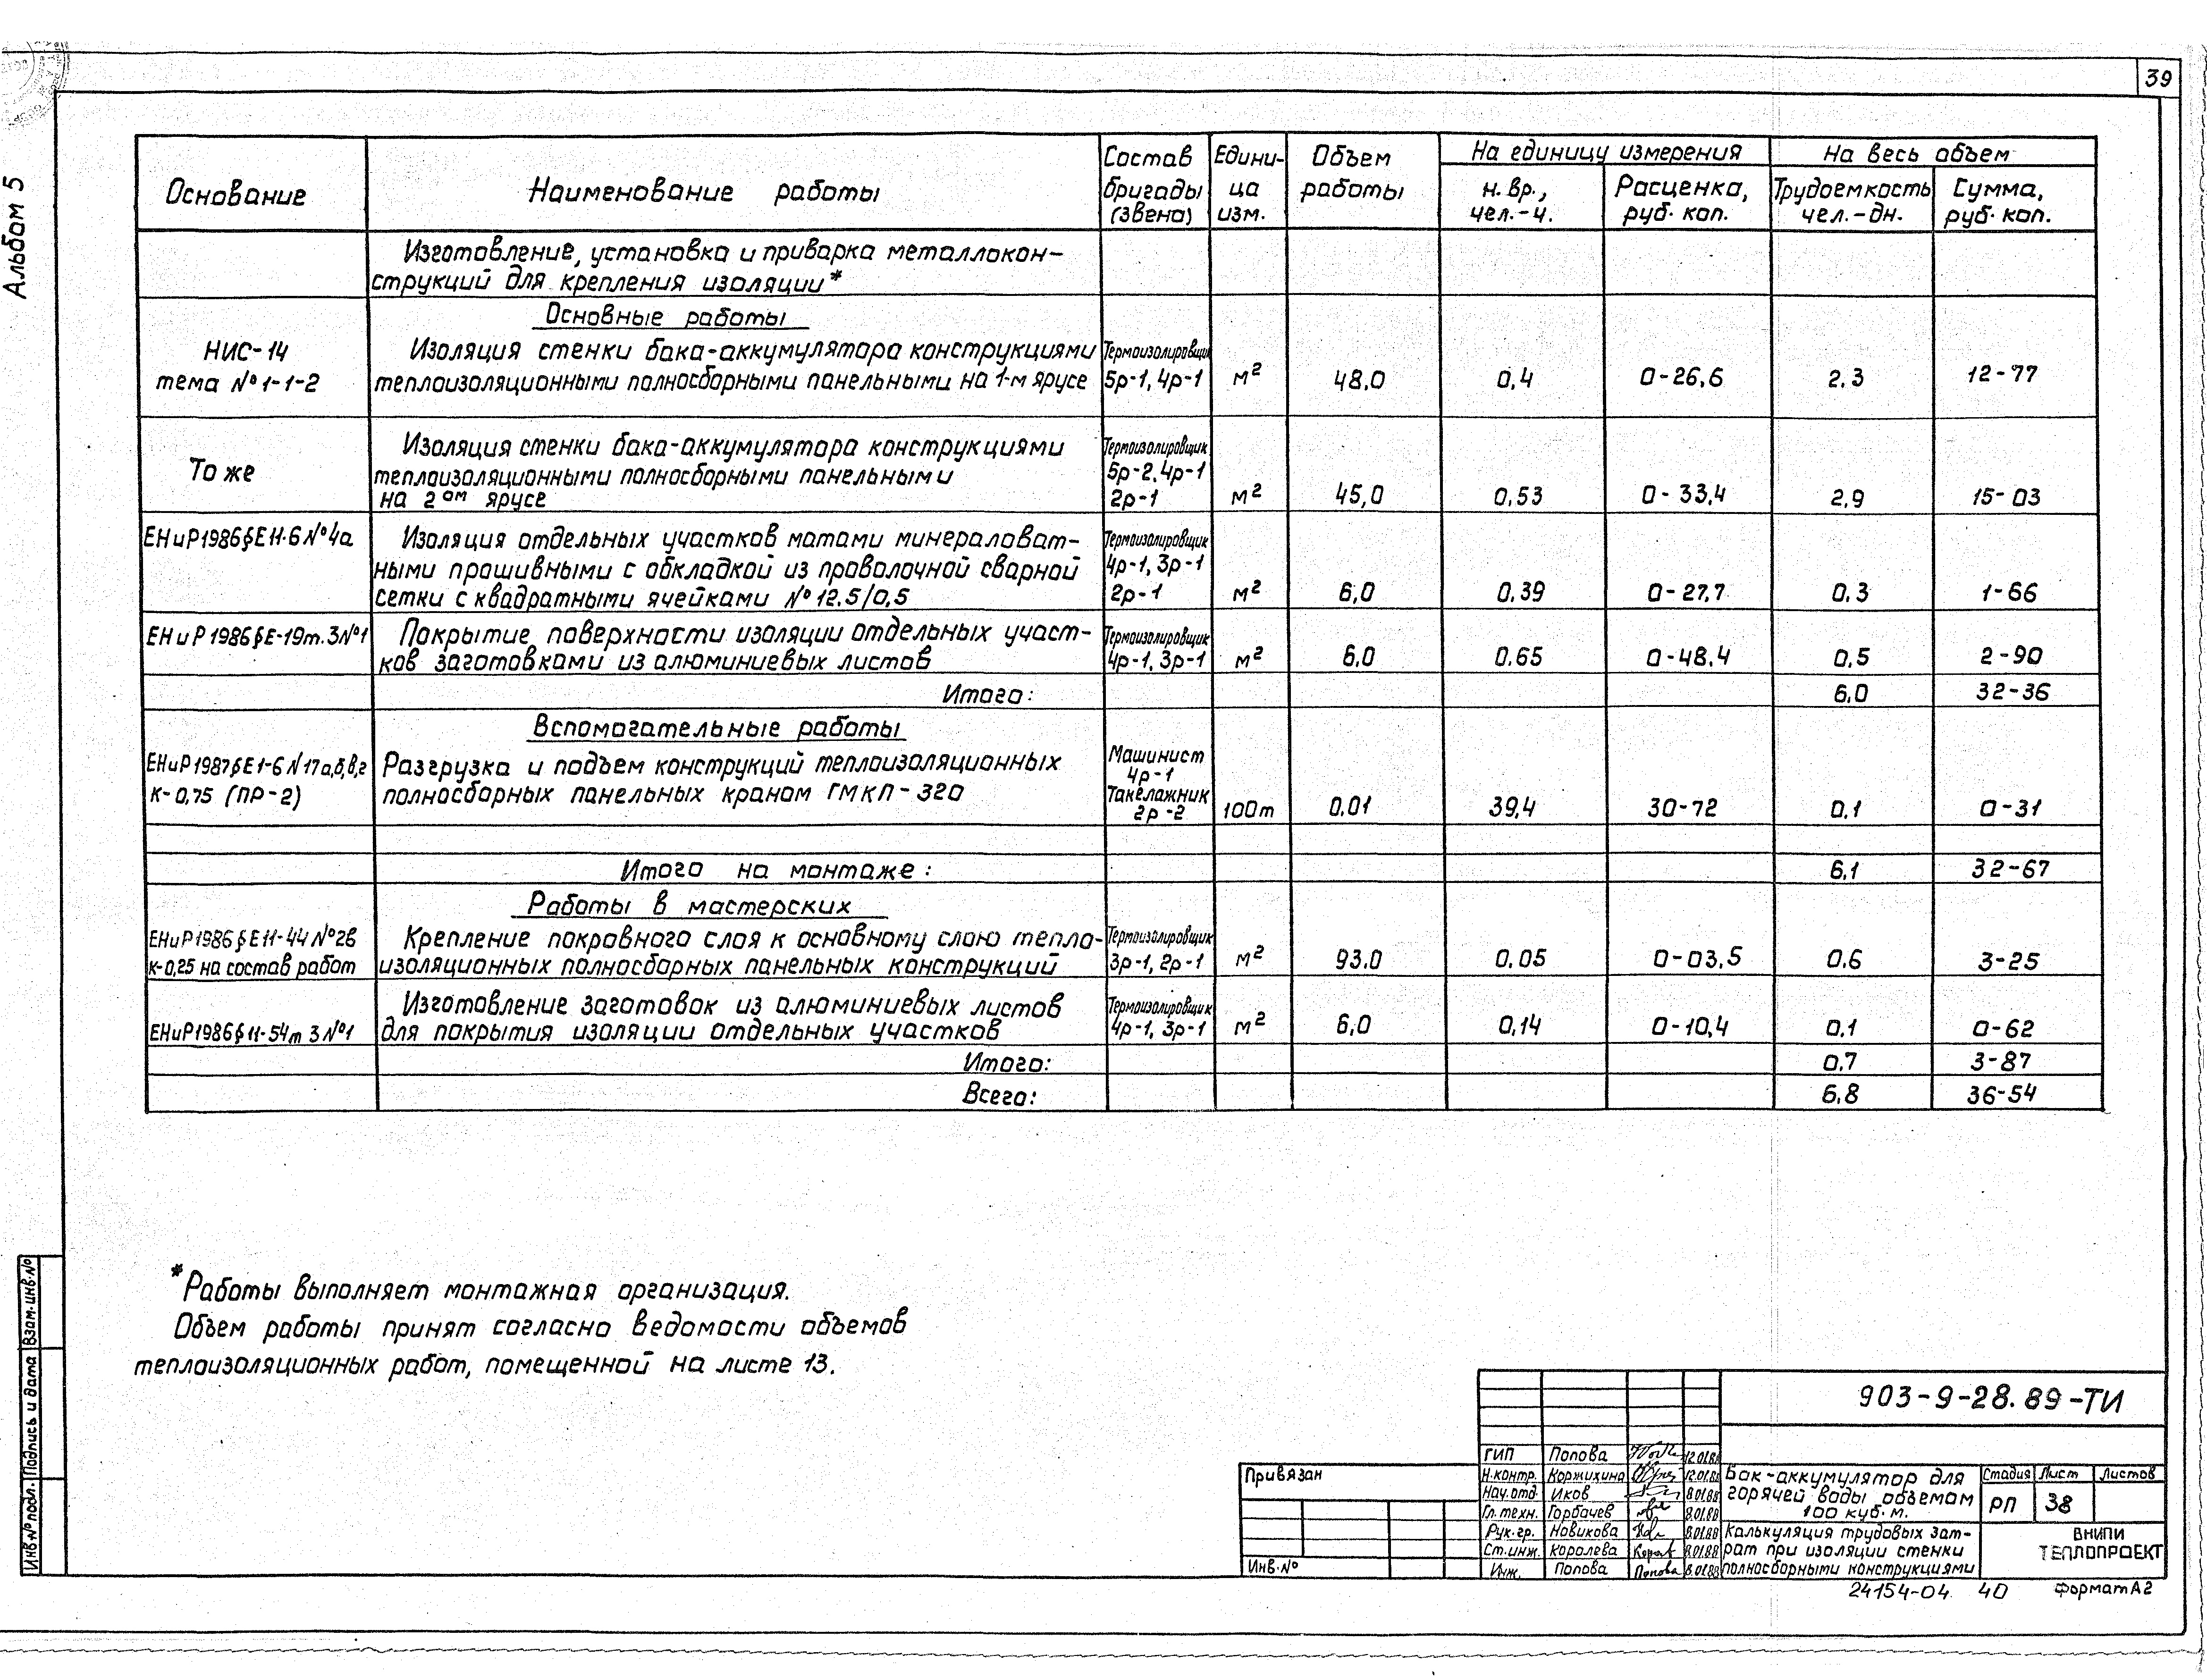 39
Альбом 5
Основание
Наименование работы
Состав бригады (звена)
Едини-
ца
изм.
Объем
работы
На единицу измерения
н. вр.,
чел.-ч.
Расценка,
руб. коп.
На весь объем
Трудоемкость
чел.-дн.
Сумма,
руб. коп.
Изготовление, установка и приварка металлокон-
струкций для крепления изоляции*
Основные работы
НИС-14
тема №1-1-2
Изоляция стенки бака-аккумулятора конструкциями
теплоизоляционными полносборными панельными на 1-м ярусе
Термоизолировщик
5р-1, 4р-1
м² 48,0 0,4 0-26,6 2,3 12-77
То же
Изоляция стенки бака-аккумулятора конструкциями
теплоизоляционными полносборными панельными
на 2ом ярусе
Термоизолировщик
5р-2, 4р-1
2р-1
м² 45,0 0,53 0-33,4 2,9 15-03
ЕНиР1986§Е11-6№4а
Изоляция отдельных участков матами минераловат-
ными прошивными с обкладкой из проволочной сварной
сетки с квадратными ячейками №12,5/0,5
Термоизолировщик
4р-1, 3р-1
2р-1
м² 6,0 0,39 0-27,7 0,3 1-66
ЕНиР1986§Е-19т.3№1
Покрытие поверхности изоляции отдельных участ-
ков заготовками из алюминиевых листов
Термоизолировщик
4р-1, 3р-1
м² 6,0 0,65 0-48,4 0,5 2-90
Итого: 6,0 32-36
Вспомогательные работы
ЕНиР1987§Е1-6№17а,б,в,г
К-0,75 (ПР-2)
Разгрузка и подъем конструкций теплоизоляционных
полносборных панельных краном ГМКП-320
Машинист
4р-1
Такелажник
2р-2
100т 0,01 39,4 30-72 0,1 0-31
Итого на монтаже: 6,1 32-67
Работы в мастерских
ЕНиР1986§Е11-44№2в
К-0,25 на состав работ
Крепление покровного слоя к основному слою тепло-
изоляционных полносборных панельных конструкций
Термоизолировщик
3р-1, 2р-1
м² 93,0 0,05 0-03,5 0,6 3-25
ЕНиР1986§11-54т 3№1
Изготовление заготовок из алюминиевых листов
для покрытия изоляции отдельных участков
Термоизолировщик
4р-1, 3р-1
м² 6,0 0,14 0-10,4 0,1 0-62
Итого: 0,7 3-87
Всего: 6,8 36-54
*Работы выполняет монтажная организация.
Объем работы принят согласно ведомости объемов
теплоизоляционных работ, помещенной на листе 13.
Взам.инв.№
Подпись и дата
Инв.№подл.
Привязан
Инв.№
903-9-28.89-ТИ
ГИП Попова 12.01.88
Н.контр. Коржихина 12.01.88
Нач.отд. Иков 8.01.88
Гл.техн. Горбачев 8.01.88
Рук.гр. Новикова 8.01.88
Ст.инж. Королева 8.01.88
Инж. Попова Попова 8.01.88
Бак-аккумулятор для
горячей воды объемом
100 куб.м.
Стадия Лист Листов
РП 38
Калькуляция трудовых зат-
рат при изоляции стенки
полносборными конструкциями
ВНИПИ
ТЕПЛОПРОЕКТ
24154-04 40 Формат А2